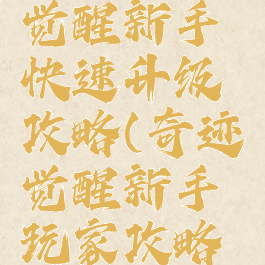 觉醒新手
快速升级
攻略(奇迹
觉醒新手
玩家攻略